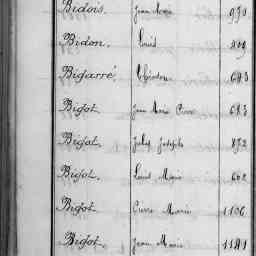 Bidois. Jean Marie 970
Bidon. Louis 409
Bigarré. Théodore 643
Bigot. Jean Marie Pierre 643
Bigot. Jules Joseph 872
Bigot. Louis Marie 602
Bigot Pierre Marie 1106
Bigot. Jean Marie 1181